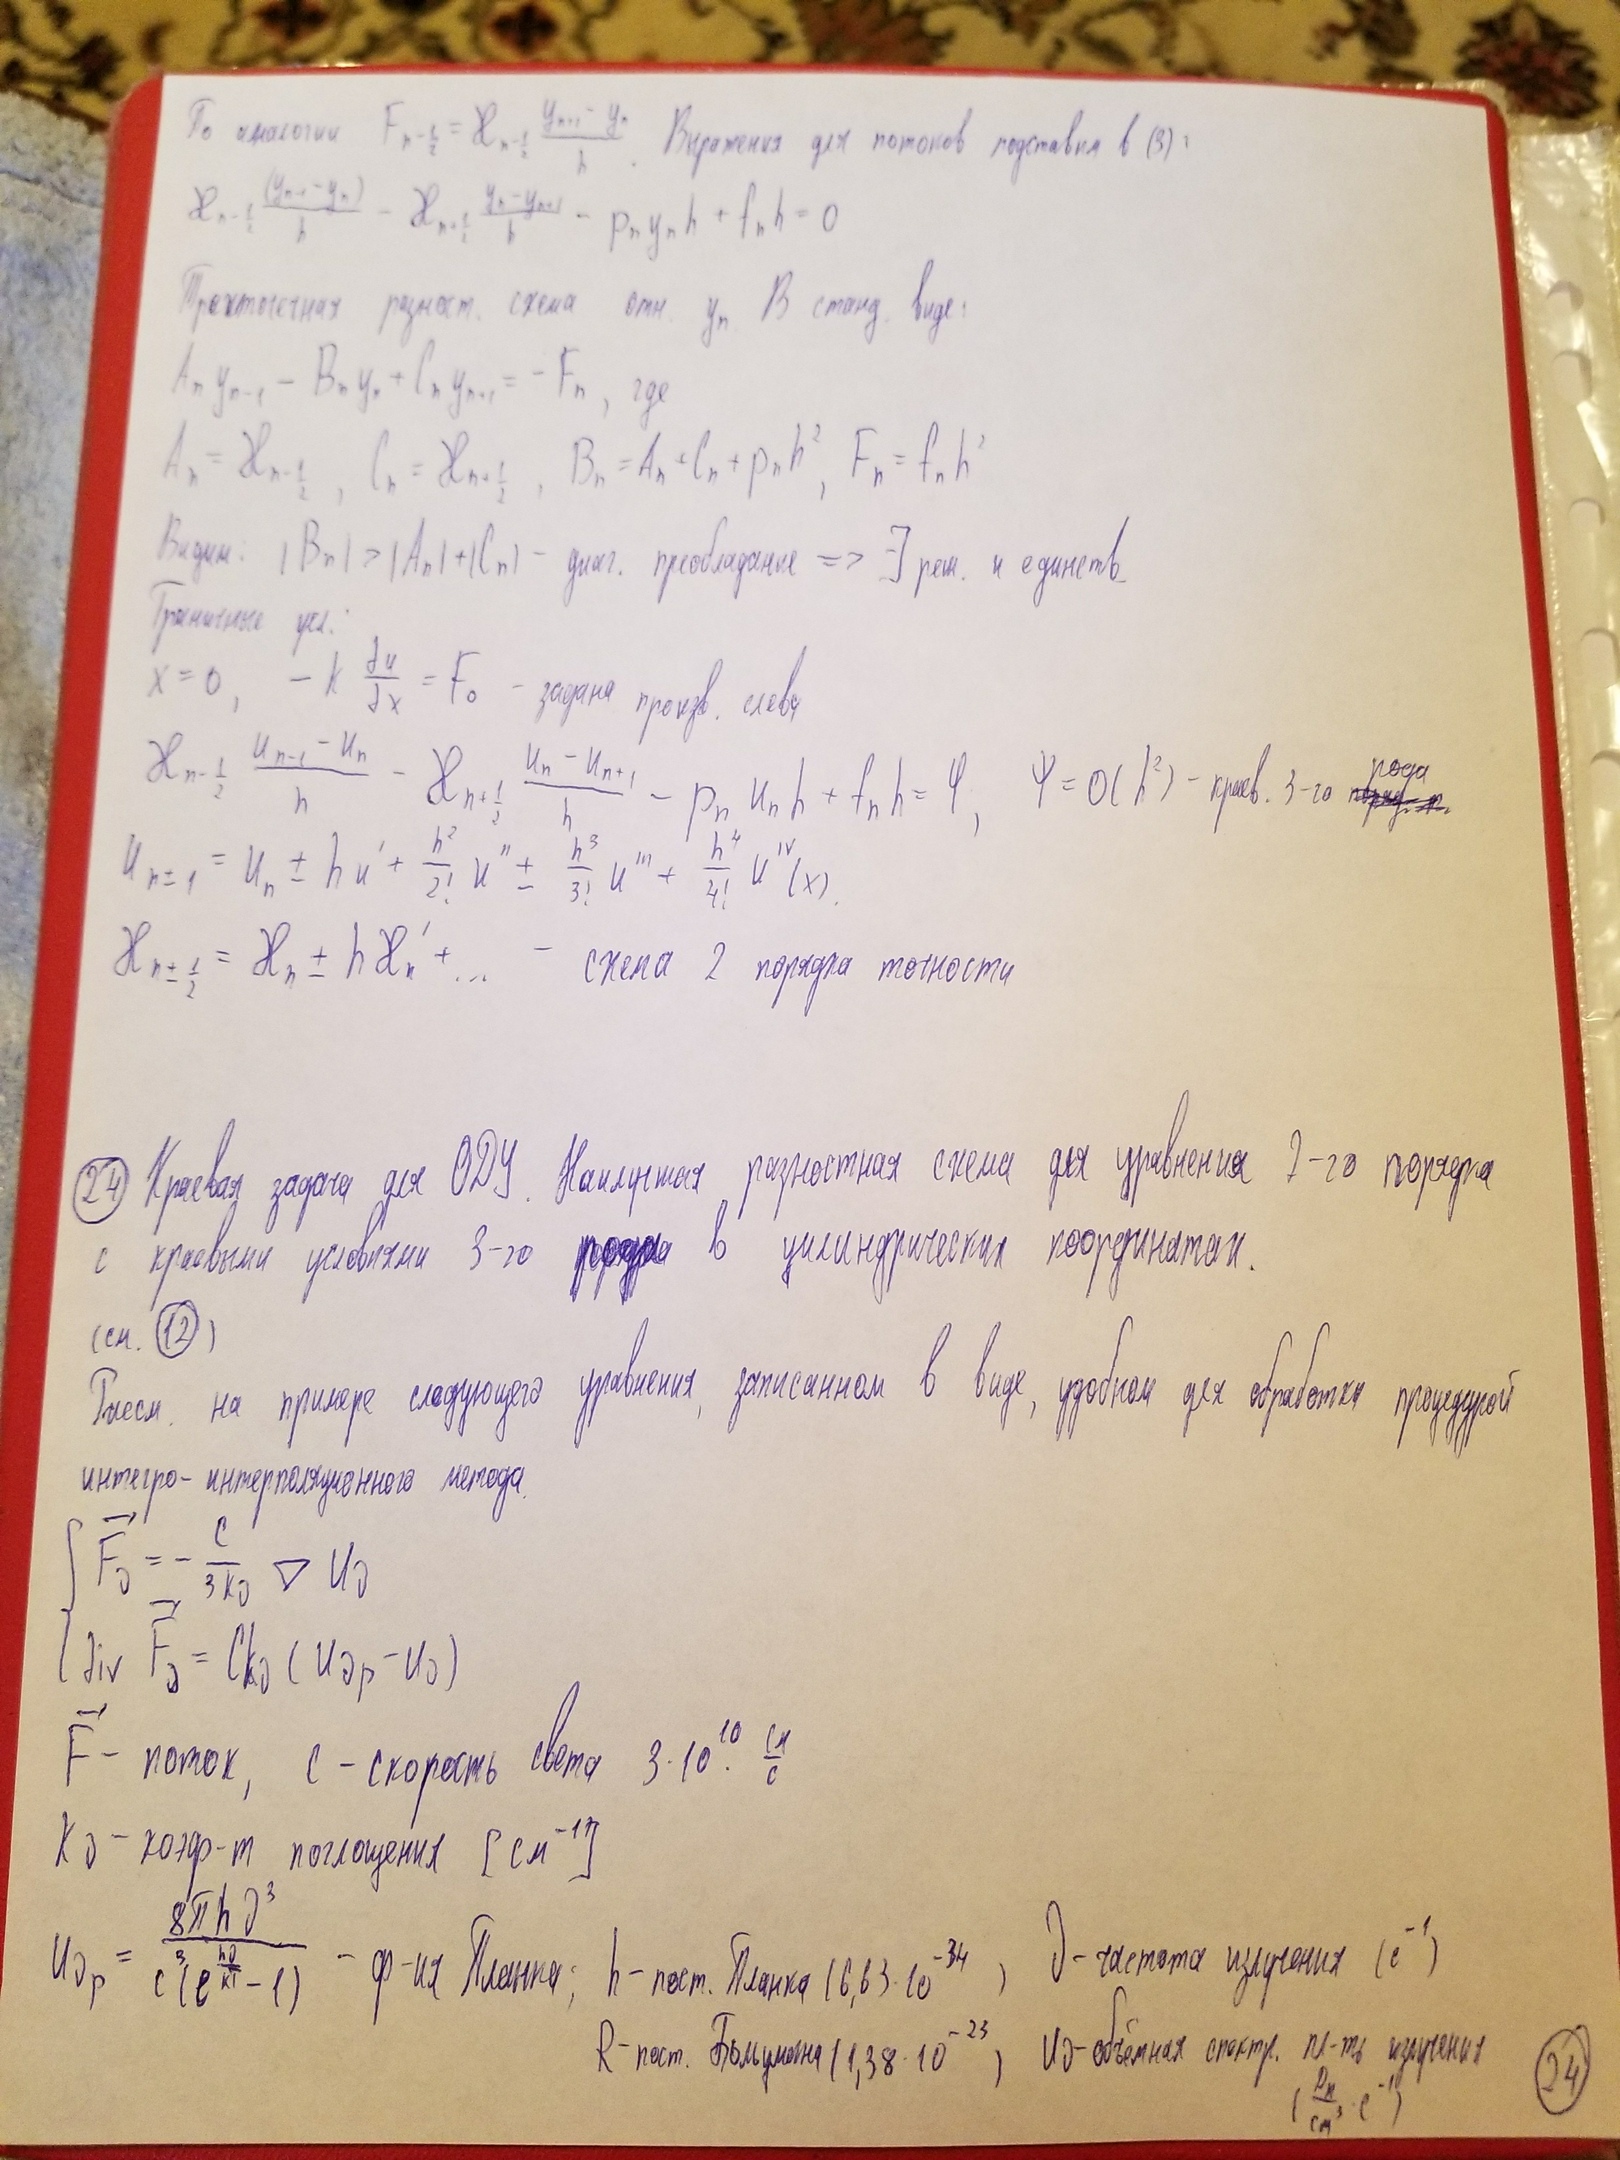 По аналогии F_{n-1/2} = ϰ_{n-1/2} (y_{n+1} - y_n)/h. Выражения для потоков подставим в (3):
ϰ_{n-1/2} (y_{n-1} - y_n)/h - ϰ_{n+1/2} (y_n - y_{n+1})/h - p_n y_n h + f_n h = 0
Трехточечная разност. схема отн. y_n. В станд. виде:
A_n y_{n-1} - B_n y_n + C_n y_{n+1} = -F_n, где
A_n = ϰ_{n-1/2}, C_n = ϰ_{n+1/2}, B_n = A_n + C_n + p_n h², F_n = f_n h²
Видим: |B_n| > |A_n| + |C_n| - диаг. преобладание => ∃ реш. и единств.
Граничные усл.:
x = 0, -k ∂u/∂x = F_0 - задана произв. слева
ϰ_{n-1/2} (u_{n-1} - u_n)/h - ϰ_{n+1/2} (u_n - u_{n+1})/h - p_n u_n h + f_n h = Ψ, Ψ = O(h²) - краев. 3-го рода
u_{n±1} = u_n ± hu' + h²/2! u'' ± h³/3! u''' + h⁴/4! u^{IV}(x).
ϰ_{n±1/2} = ϰ_n ± hϰ_n' + ... - схема 2 порядка точности
24 Краевая задача для ОДУ. Наилучшая разностная схема для уравнения 2-го порядка
с краевыми условиями 3-го рода в цилиндрических координатах.
(см. 12)
Рассм. на примере следующего уравнения, записанном в виде, удобном для обработки процедурой
интегро-интерполяционного метода.
{ F⃗_ν = - c/(3k_ν) ∇ u_ν
{ div F⃗_ν = Ck_ν (u_{νp} - u_ν)
F⃗ - поток, c - скорость света 3·10¹⁰ · см/с
k_ν - коэф-т поглощения [см⁻¹]
u_{νp} = 8πhν³/(c³(e^{hν/kT} - 1)) - ф-ия Планка; h - пост. Планка (6,63·10⁻³⁴), ν - частота излучения (с⁻¹)
R - пост. Больцмана (1,38·10⁻²³), u_ν - объёмная спектр. пл-ть излучения
(Дж/см³ · с⁻¹)
24